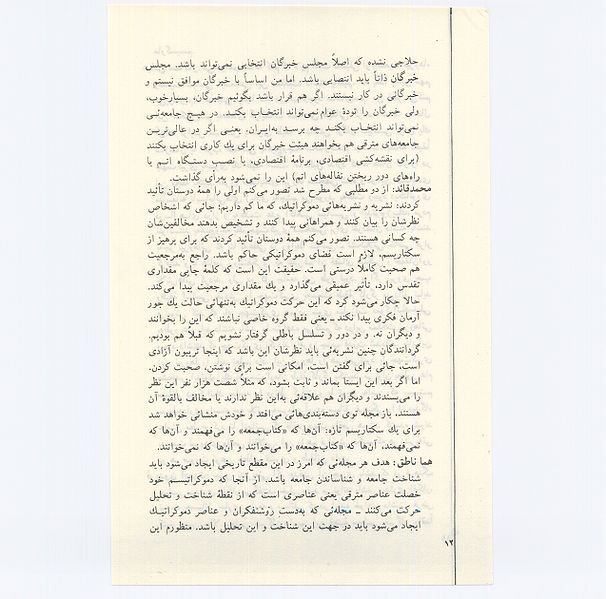 حلاجی نشده که اصلاً مجلس خبرگان انتخابی نمی‌تواند باشد. مجلس
خبرگان ذاتاً باید انتصابی باشد. اما من اساساً با خبرگان موافق نیستم و
خبرگانی در کار نیستند. اگر هم قرار باشد بگوئیم خبرگان، بسیارخوب،
ولی خبرگان را تودهٔ عوام نمی‌تواند انتخاب بکند. در هیچ جامعه‌ئی
نمی‌تواند انتخاب بکند چه برسد به‌ایران. یعنی اگر در عالی‌ترین
جامعه‌های مترقی هم بخواهند هیئت خبرگان برای یك کاری انتخاب بکنند
(برای نقشه‌کشی اقتصادی، برنامهٔ اقتصادی، یا نصب دستگاه اتم یا
راه‌های دور ریختن تفاله‌های اتم) این را نمی‌شود به‌رأی گذاشت.
محمدقائد: از دو مطلبی که مطرح شد تصور می‌کنم اولی را همهٔ دوستان تأئید
کردند: نشریه و نشریه‌هائی دموکراتیك، که ما کم داریم؛ جائی که اشخاص
نظرشان را بیان کنند و همراهانی پیدا کنند و تشخیص بدهند مخالفین‌شان
چه کسانی هستند. تصور می‌کنم همهٔ دوستان تأئید کردند که برای پرهیز از
سکتاریسم، لازم است فضای دموکراتیکی حاکم باشد. راجع به‌مرجعیت
هم صحبت کاملاً درستی است. حقیقت این است که کلمهٔ چاپی مقداری
تقدس دارد، تأثیر عمیقی می‌گذارد و یك مقداری مرجعیت پیدا می‌کند.
حالا چکار می‌شود کرد که این حرکت دموکراتیك به‌تنهائی حالت یك جور
آرمان فکری پیدا نکند ـ یعنی فقط گروه خاصی نباشند که این را بخوانند
و دیگران نه. و در دور و تسلسل باطلی گرفتار نشویم که قبلاً هم بودیم.
گردانندگان چنین نشریه‌ئی باید نظرشان این باشد که اینجا تریبون آزادی
است، جائی برای گفتن است، امکانی است برای نوشتن، صحبت کردن.
اما اگر بعد این ایستا بماند و ثابت بشود، که مثلاً شصت هزار نفر این نظر
را می‌پسندند و دیگران هم علاقه‌ئی به‌این نظر ندارند یا مخالف بالقوهٔ آن
هستند، باز مجله توی دسته‌بندی‌هائی می‌افتد و خودش منشائی خواهد شد
برای یك سکتاریسم تازه: آن‌ها که «کتاب‌جمعه» را می‌فهمند و آن‌ها که
نمی‌فهمند، آن‌ها که «کتاب‌جمعه» را می‌خوانند و آن‌ها که نمی‌خوانند.
هما ناطق: هدف هر مجله‌ئی که امرز در این مقطع تاریخی ایجاد می‌شود باید
شناخت جامعه و شناساندن جامعه باشد. از آنجا که دموکراتیسم خود
خصلت عناصر مترقی یعنی عناصری است که از نقطهٔ شناخت و تحلیل
حرکت می‌کنند ـ مجله‌ئی که به‌دست روشنفکران و عناصر دموکراتیك
ایجاد می‌شود باید در جهت این شناخت و این تحلیل باشد. منظورم این
۱۲